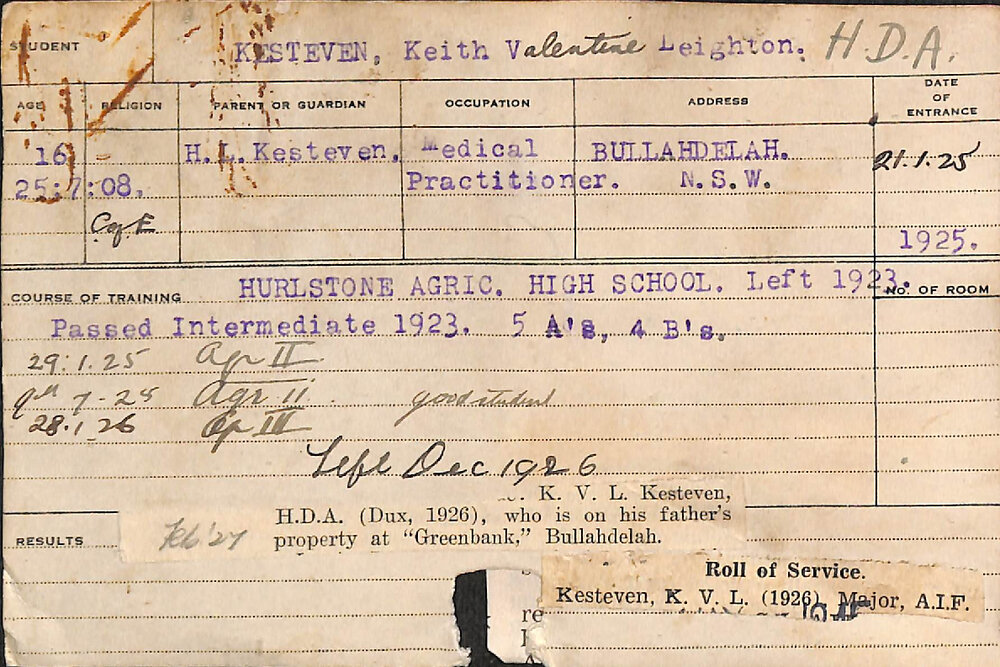 STUDENT KESTEVEN, Keith Valentine Leighton. H.D.A.
AGE RELIGION PARENT OR GUARDIAN OCCUPATION ADDRESS DATE OF ENTRANCE
16 - H.L.Kesteven. Medical BULLAHDELAH. 21.1.25
25:7:08. Practitioner. N.S.W.
C of E
1925.
COURSE OF TRAINING HURLSTONE AGRIC. HIGH SCHOOL. Left 1923. NO. OF ROOM
Passed Intermediate 1923. 5 A's, 4 B's.
29.1.25 Agr II
7-25 Agr II. good student
28.1.26 III
Left Dec 1926
K. V. L. Kesteven,
H.D.A. (Dux, 1926), who is on his father's
property at "Greenbank," Bullahdelah.
Feb '27
RESULTS
Roll of Service.
Kesteven, K. V. L. (1926) Major, A.I.F.
re